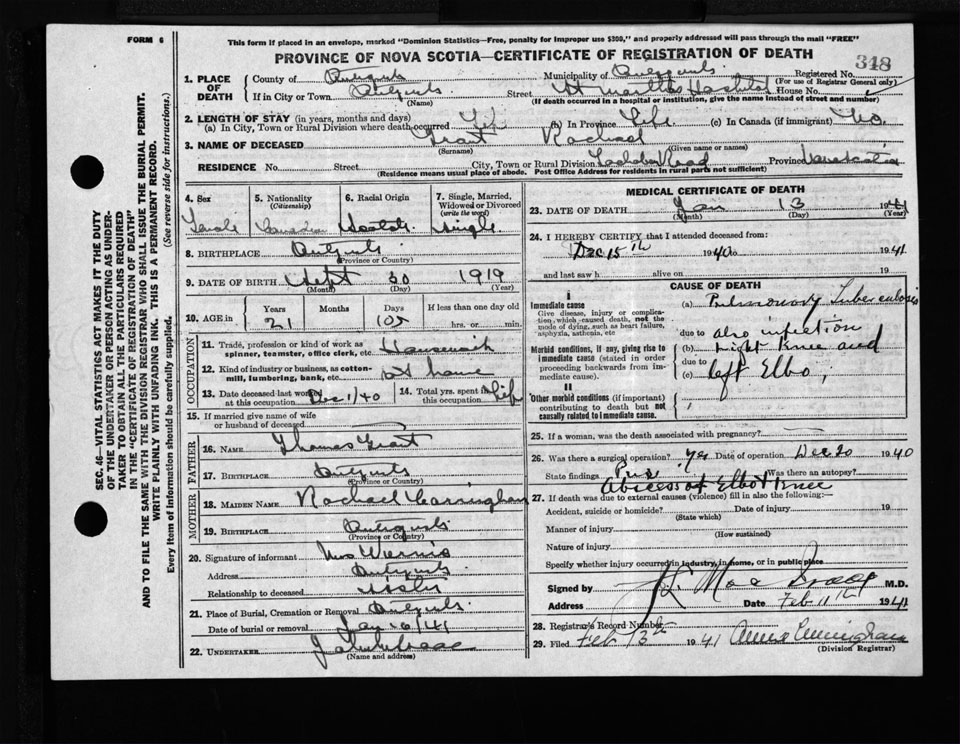 FORM 6
This form if placed in an envelope, marked "Dominion Statistics—Free, penalty for improper use $300," and properly addressed will pass through the mail "FREE"
PROVINCE OF NOVA SCOTIA—CERTIFICATE OF REGISTRATION OF DEATH
348
SEC. 46—VITAL STATISTICS ACT MAKES IT THE DUTY
OF THE UNDERTAKER OR PERSON ACTING AS UNDER-
TAKER TO OBTAIN ALL THE PARTICULARS REQUIRED
IN THE "CERTIFICATE OF REGISTRATION OF DEATH"
AND TO FILE THE SAME WITH THE DIVISION REGISTRAR WHO SHALL ISSUE THE BURIAL PERMIT.
WRITE PLAINLY WITH UNFADING INK. THIS IS A PERMANENT RECORD.
Every item of information should be carefully supplied. (See reverse side for instructions.)
1. PLACE OF DEATH
County of Antigonish Municipality of Antigonish Registered No.
(For use of Registrar General only)
If in City or Town Antigonish Street St Marthas Hospital House No.
(Name) (If death occurred in a hospital or institution, give the name instead of street and number)
2. LENGTH OF STAY (in years, months and days)
(a) In City, Town or Rural Division where death occurred Life (b) In Province Life (c) In Canada (if immigrant) No.
3. NAME OF DECEASED Grant Rachael
(Surname) (Given name or names)
RESIDENCE No. Street City, Town or Rural Division Road Province Nova Scotia
(Residence means usual place of abode. Post Office Address for residents in rural parts not sufficient)
4. Sex
Female
5. Nationality (Citizenship)
Canadian
6. Racial Origin
Scotch
7. Single, Married, Widowed or Divorced (write the word)
Single
8. BIRTHPLACE Antigonish
(Province or Country)
9. DATE OF BIRTH Sept 30 1919
(Month) (Day) (Year)
10. AGE in Years Months Days If less than one day
21 105 hrs. or min.
OCCUPATION
11. Trade, profession or kind of work as spinner, teamster, office clerk, etc. Housework
12. Kind of industry or business, as cotton-mill, lumbering, bank, etc. At home
13. Date deceased last worked at this occupation Dec 1/40
14. Total yrs. spent in this occupation Life
15. If married give name of wife or husband of deceased
FATHER
16. NAME Thomas Grant
17. BIRTHPLACE Antigonish
(Province or Country)
MOTHER
18. MAIDEN NAME Rachael
19. BIRTHPLACE Antigonish
(Province or Country)
20. Signature of informant Mrs
Address Antigonish
Relationship to deceased Sister
21. Place of Burial, Cremation or Removal Antigonish
Date of burial or removal Jan 16/41
22. UNDERTAKER
(Name and address)
MEDICAL CERTIFICATE OF DEATH
23. DATE OF DEATH Jan 13 1941
(Month) (Day) (Year)
24. I HEREBY CERTIFY that I attended deceased from:
Dec 15th 1940 to 1941
and last saw h alive on 19
CAUSE OF DEATH
I
Immediate cause
Give disease, injury or complication, which caused death, not the mode of dying, such as heart failure, asphyxia, asthenia, etc
(a) Pulmonary Tuberculosis
due to also infection
Morbid conditions, if any, giving rise to immediate cause (stated in order proceeding backwards from immediate cause).
(b) right Knee and
due to
(c) left Elbo;
II
Other morbid conditions (if important) contributing to death but not causally related to immediate cause.
25. If a woman, was the death associated with pregnancy?
26. Was there a surgical operation? Yes Date of operation Dec 20 1940
State findings Pus Was there an autopsy?
Abscess of Elbo + Knee
27. If death was due to external causes (violence) fill in also the following:—
Accident, suicide or homicide? Date of injury 19
(State which)
Manner of injury
(How sustained)
Nature of injury
Specify whether injury occurred in industry, in home, or in public place
Signed by M.D.
Address Date Feb 11th 1941
28. Registrar's Record Number
29. Filed Feb 13th 1941 Annie Cunningham
(Division Registrar)